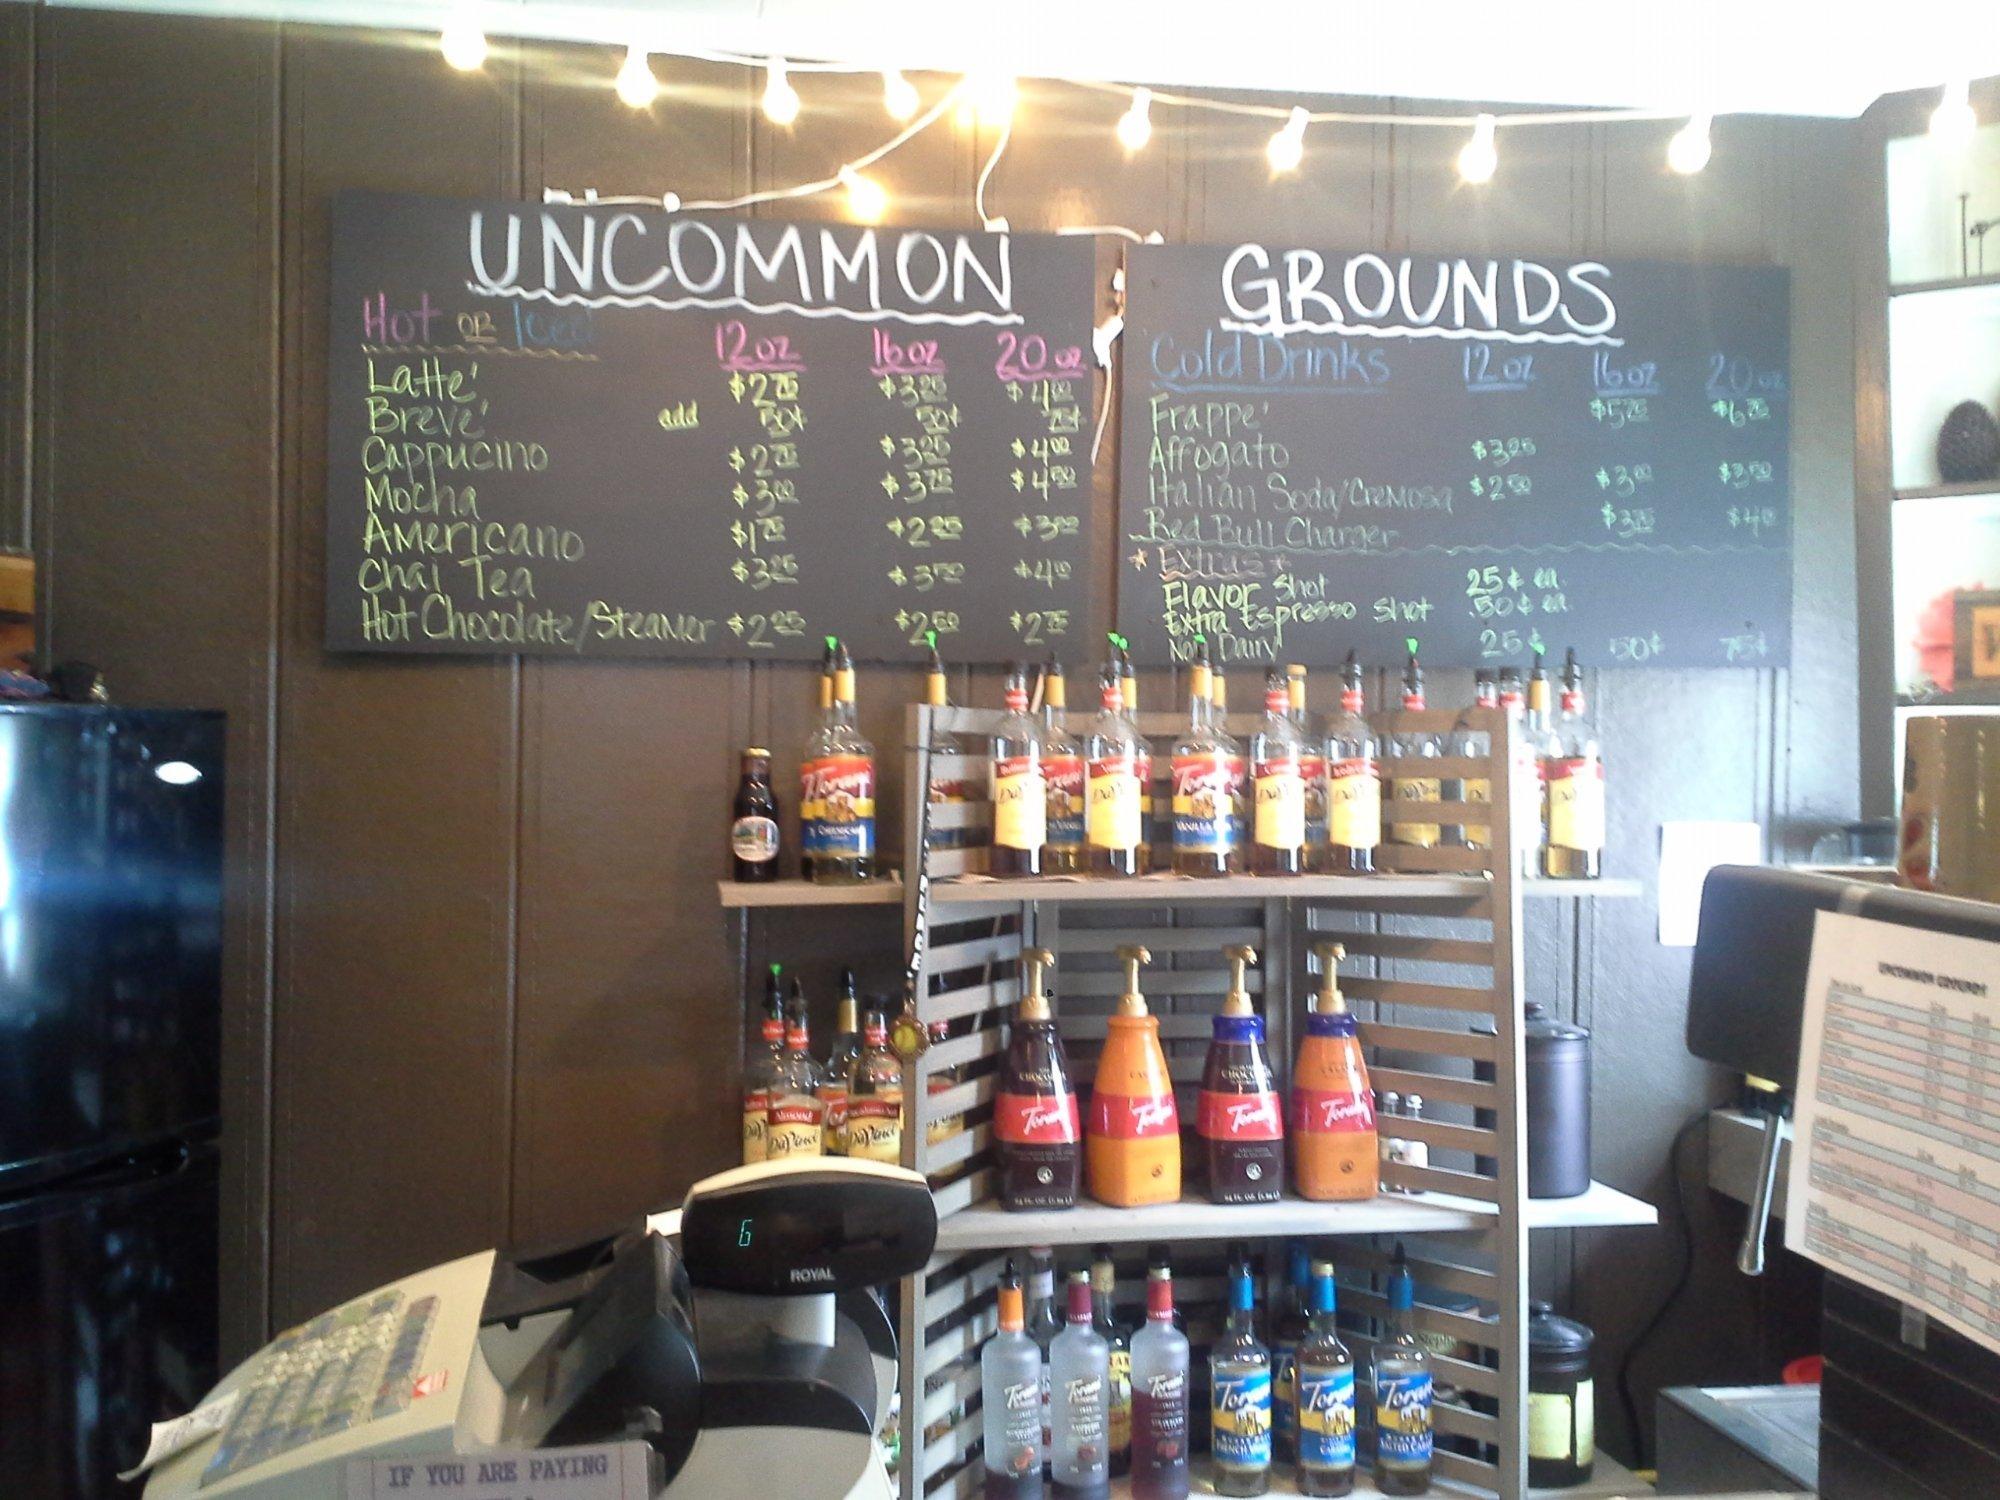 UNCOMMON
Hot OR Iced 12oz 16oz 20oz
Latte' $2.75 $3.25 $4.00
Breve' add 50¢ 50¢ 75¢
Cappucino $2.75 $3.25 $4.00
Mocha $3.00 $3.75 $4.50
Americano $1.75 $2.25 $3.00
Chai Tea $3.25 $3.50 $4.00
Hot Chocolate/Steamer $2.25 $2.50 $2.75
GROUNDS
Cold Drinks 12oz 16oz 20oz
Frappe' $5.75 $6.75
Affogato $3.25
Italian Soda/Cremosa $2.50 $3.00 $3.50
Red Bull Charger $3.75
*Extras*
Flavor Shot 25¢ ea.
Extra Espresso Shot .50¢ ea.
Non Dairy 25¢ 50¢ 75¢
Torani
DaVinci
Torani
Vanilla
Torani
Torani
Torani
Torani
Almond
DaVinci
DaVinci
UNCOMMON GROUNDS
6
ROYAL
Torani
Torani
Torani
Torani
Torani
Torani
IF YOU ARE PAYING